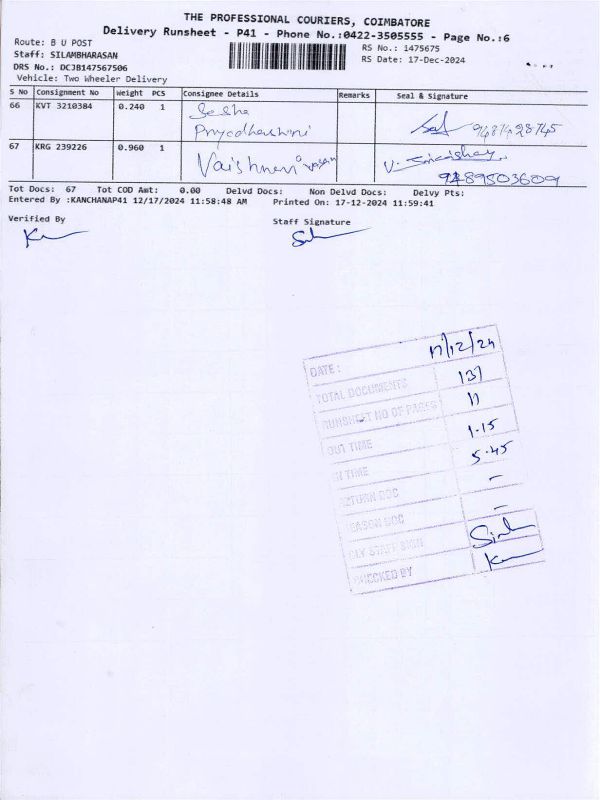 THE PROFESSIONAL COURIERS, COIMBATORE
Delivery Runsheet - P41 - Phone No.:0422-3505555 - Page No.:6
Route: B U POST
RS No.: 1475675
Staff: SILAMBHARASAN
RS Date: 17-Dec-2024
DRS No.: DCJB147567506
Vehicle: Two Wheeler Delivery
S No Consignment No Weight PCS Consignee Details Remarks Seal & Signature
66 KVT 3210384 0.240 1 Sesha
Priyadharshini
67 KRG 239226 0.960 1 Vaishnavi
Tot Docs: 67 Tot COD Amt: 0.00 Delvd Docs: Non Delvd Docs: Delvy Pts:
Entered By :KANCHANAP41 12/17/2024 11:58:48 AM Printed On: 17-12-2024 11:59:41
Verified By Staff Signature
DATE: 17/12/24
TOTAL DOCUMENTS 137
RUNSHEET NO OF PAGES 11
OUT TIME 1.15
IN TIME 5.45
RETURN DOC -
REASON DOC -
DLY STAFF SIGN
CHECKED BY